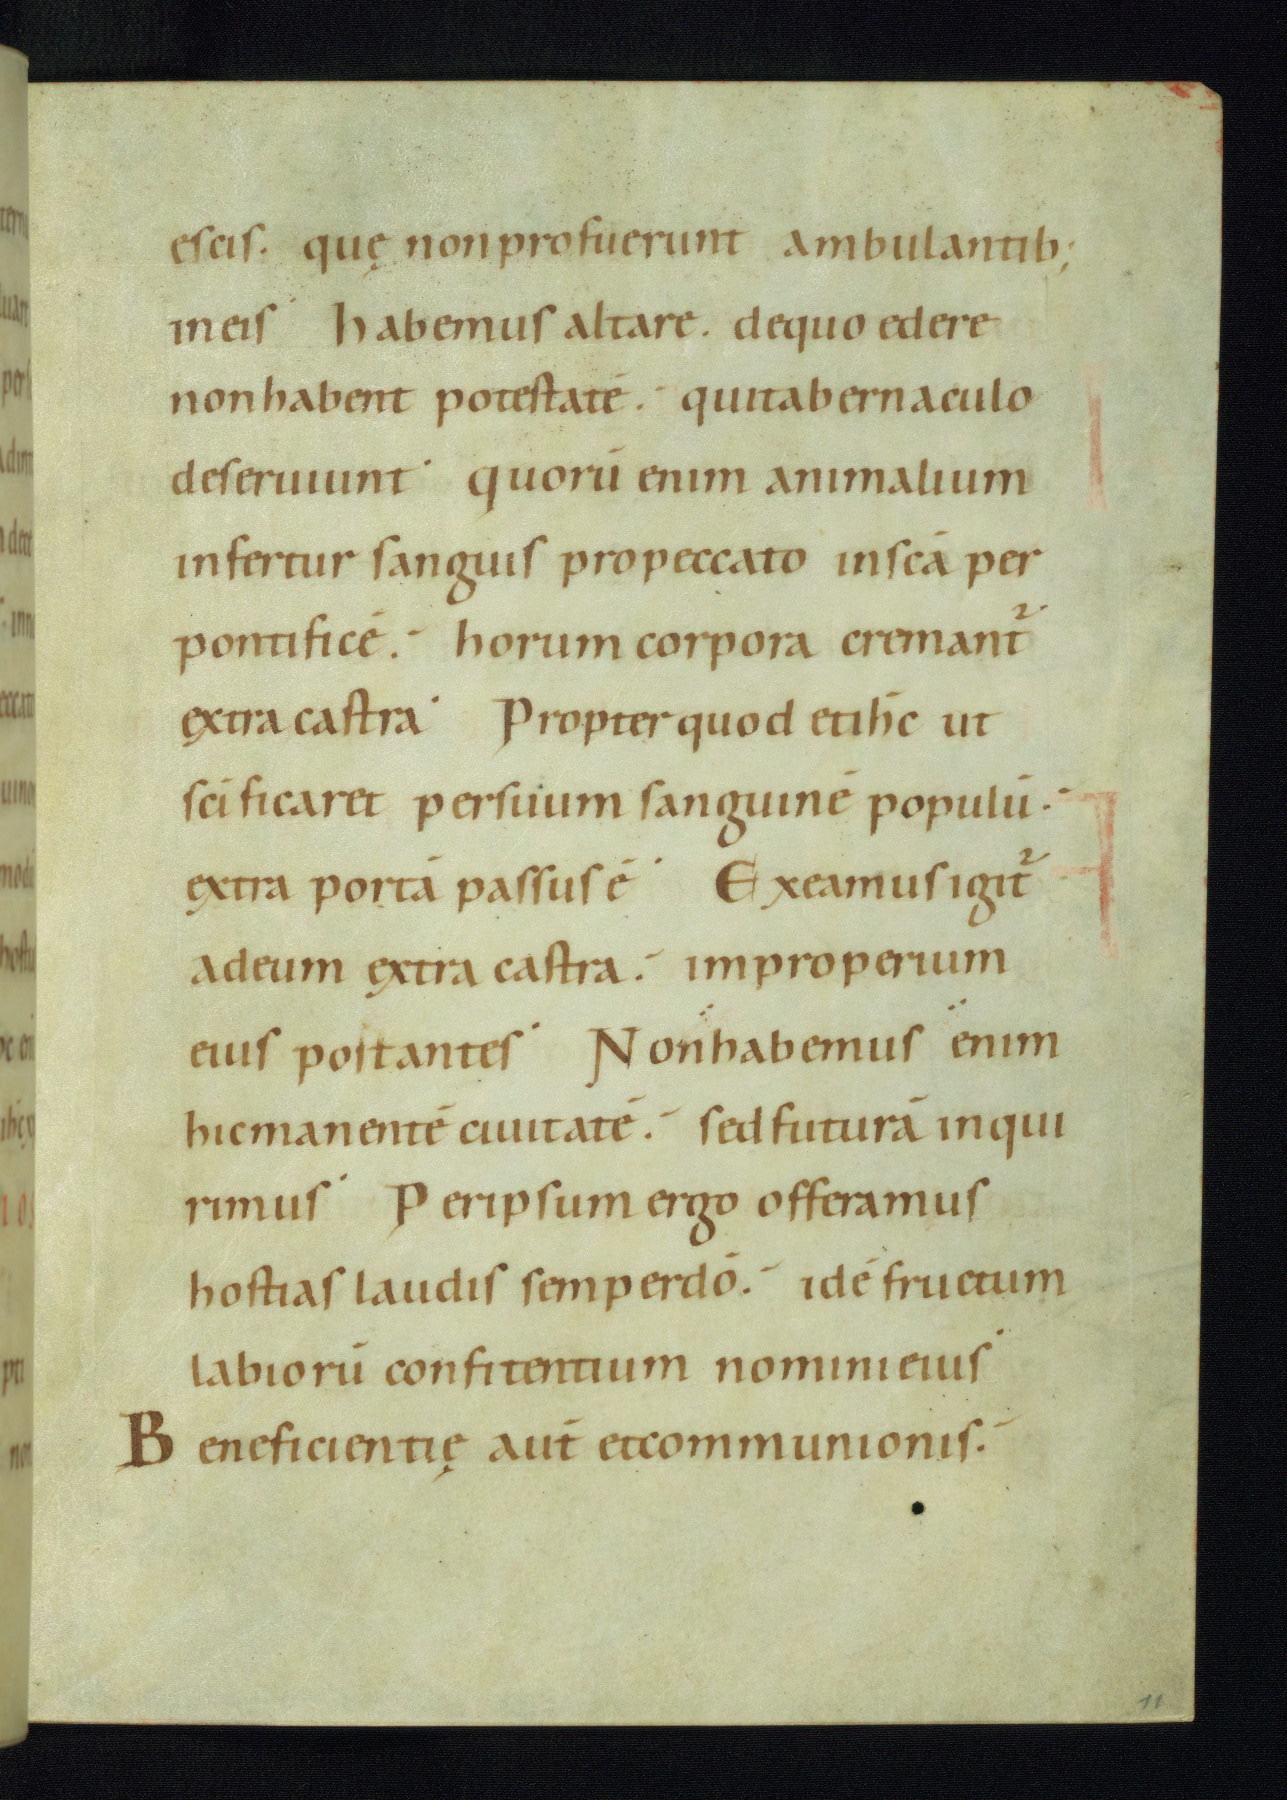 escis. quę non profuerunt ambulantib;
in eis habemus altare. de quo edere
non habent potestatē. qui tabernaculo
deseruiunt quorū enim animalium
infertur sanguis pro peccato in scā per
pontificē. horum corpora cremant᷑
extra castra Propter quod et ihc̄ ut
scīficaret per suum sanguinē populū.
extra portā passus ē Exeamus igit᷑
ad eum extra castra. improperium
eius portantes Non habemus enim
hic manentē ciuitatē. sed futurā inqui
rimus Per ipsum ergo offeramus
hostias laudis semper dō. id ē fructum
labiorū confitentium nomini eius
Beneficientię aut̄ et communionis.
11